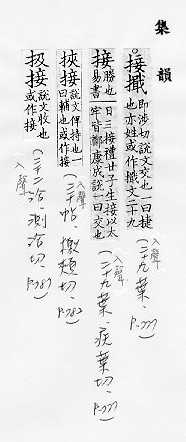 集韻
接擑即涉切說文交也一曰捷
也亦姓或作擑文二十九
入聲
(二十九葉.P.777)
接勝也一曰三接禮廿子生接以太
易書牢皆鄭康成說一曰交也
入聲
(二十九葉.疾葉切.P.777)
挾接說文俾持也一
曰輔也或作接
入聲
(三十帖.檄頰切.P.782)
扱接說文收也
或作接
入聲
(三十二洽.測洽切.P.787)